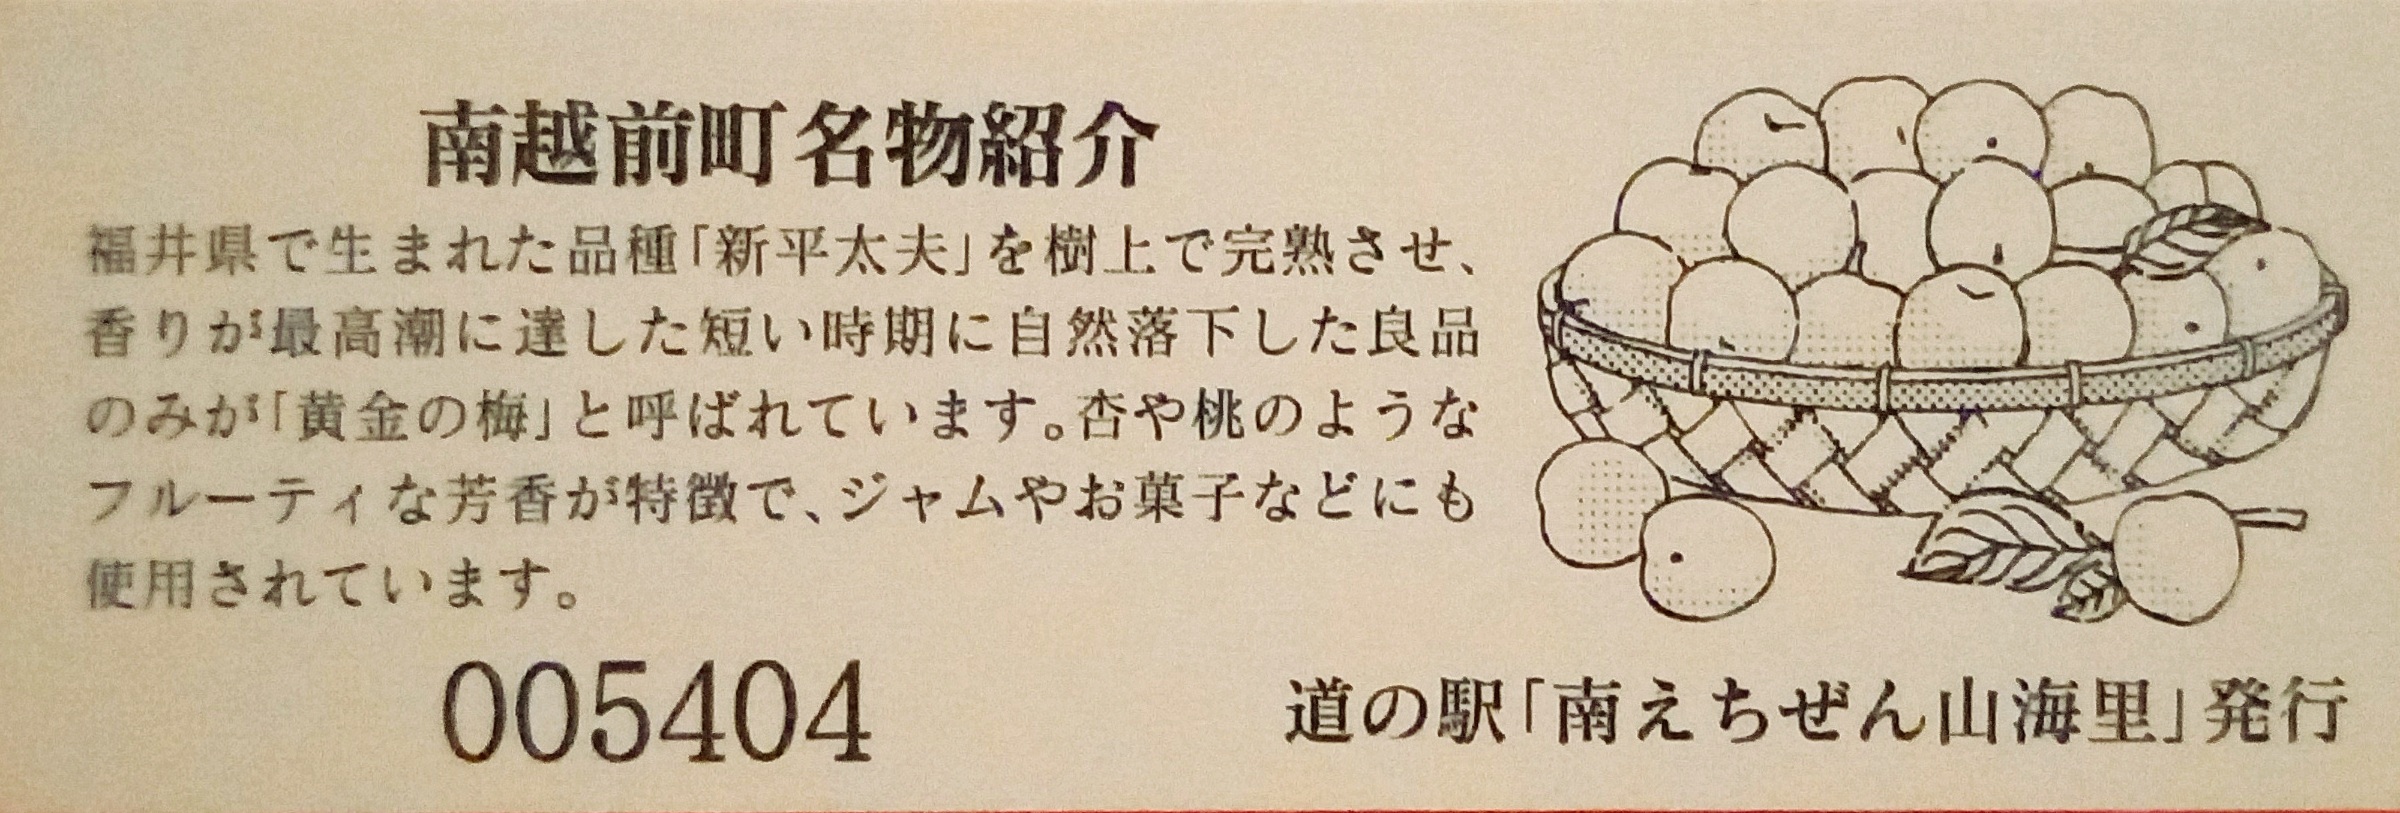 南越前町名物紹介
福井県で生まれた品種「新平太夫」を樹上で完熟させ、
香りが最高潮に達した短い時期に自然落下した良品
のみが「黄金の梅」と呼ばれています。杏や桃のような
フルーティな芳香が特徴で、ジャムやお菓子などにも
使用されています。
005404
道の駅「南えちぜん山海里」発行